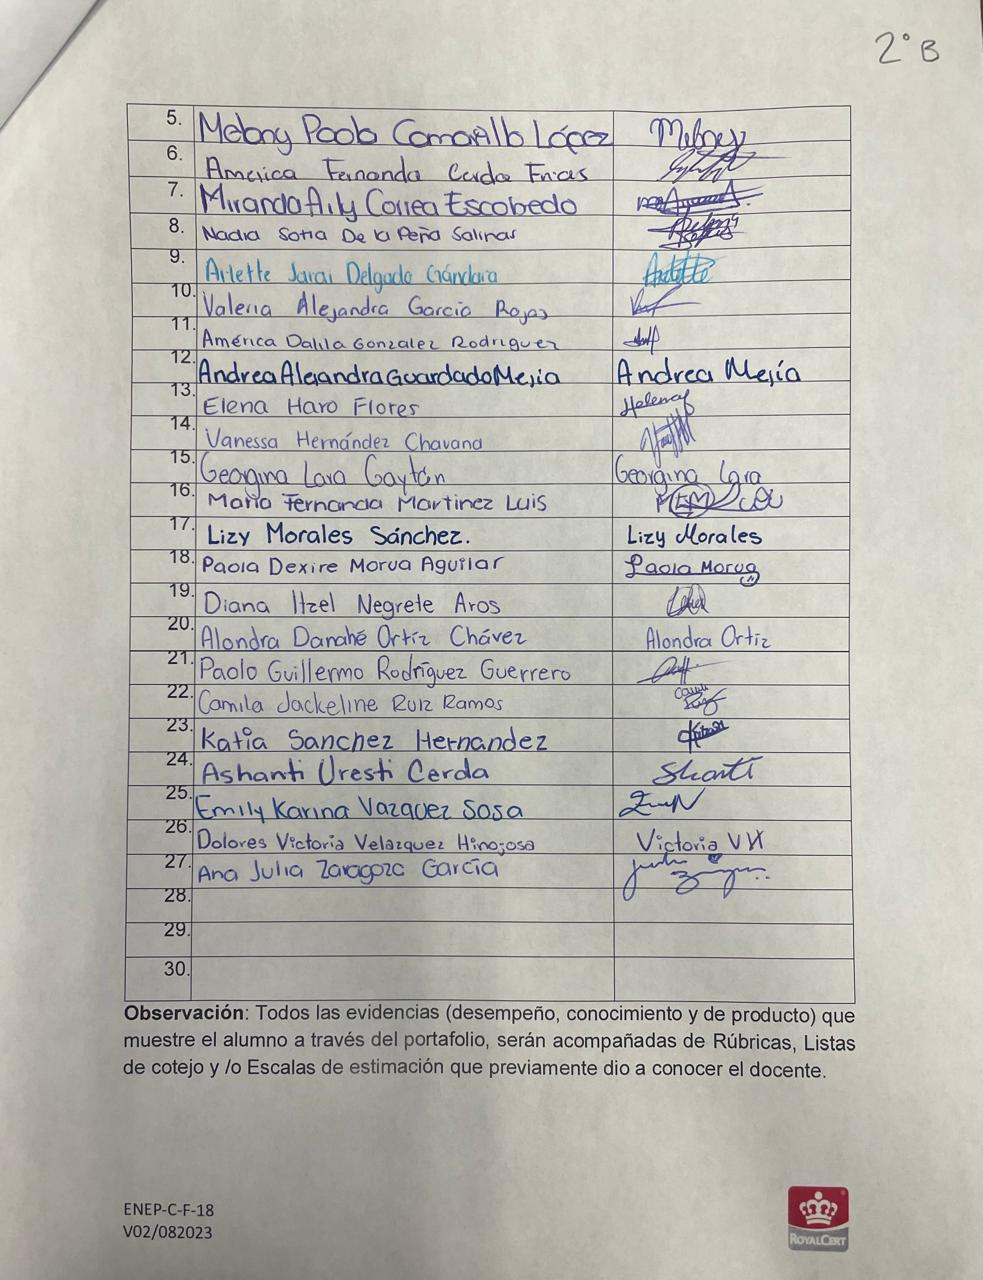 2° B
5. Melany Paola Camarillo López Melany
6. America Fernanda Cerda Frias
7. Miranda Arly Correa Escobedo
8. Nadia Sofia De la Peña Salinas
9. Arlette Jarai Delgado Gándara Arlette
10. Valeria Alejandra Garcia Rojas
11. América Dalila Gonzalez Rodriguez
12. Andrea Alejandra Guardado Mejia Andrea Mejía
13. Elena Haro Flores Helena
14. Vanessa Hernández Chavana
15. Georgina Lara Gaytán Georgina Lara
16. Maria Fernanda Martinez Luis
17. Lizy Morales Sánchez. Lizy Morales
18. Paola Dexire Morua Aguilar Paola Morua
19. Diana Itzel Negrete Aros
20. Alondra Danahé Ortíz Chávez Alondra Ortíz
21. Paolo Guillermo Rodríguez Guerrero
22. Camila Jackeline Ruiz Ramos
23. Katia Sanchez Hernandez
24. Ashanti Uresti Cerda Shanti
25. Emily Karina Vazquez Sosa
26. Dolores Victoria Velazquez Hinojosa Victoria VH
27. Ana Julia Zaragoza García
28.
29.
30.
Observación: Todos las evidencias (desempeño, conocimiento y de producto) que
muestre el alumno a través del portafolio, serán acompañadas de Rúbricas, Listas
de cotejo y /o Escalas de estimación que previamente dio a conocer el docente.
ENEP-C-F-18
V02/082023
ROYALCERT